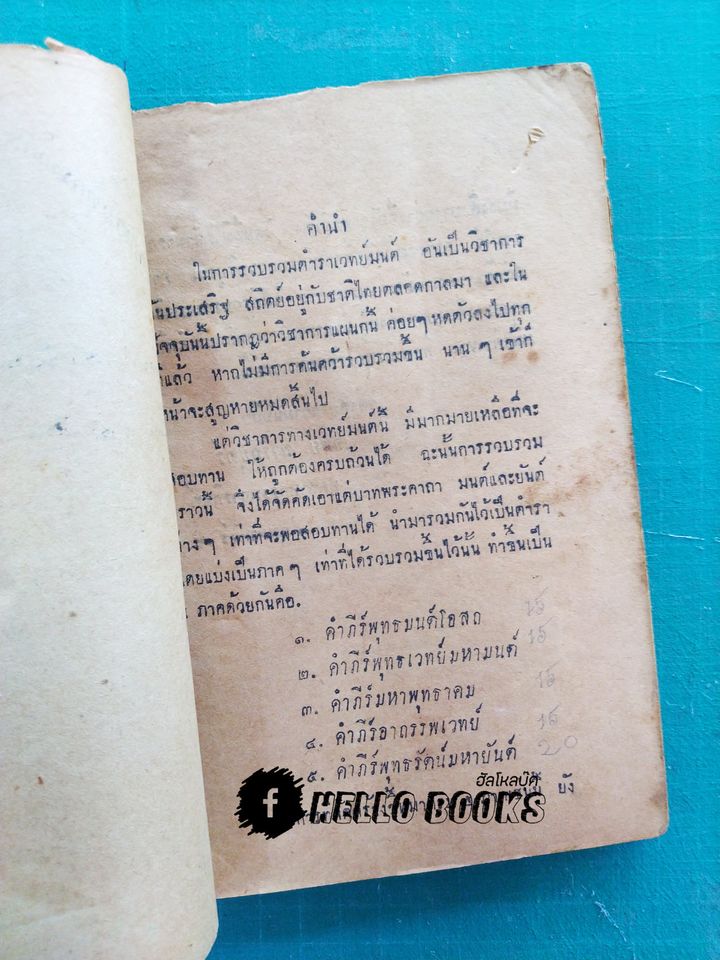 คำนำ
ในการรวบรวมตำราเวทย์มนต์ อันเป็นวิชาการ
ันประเสริฐ สถิตย์อยู่กับชาติไทยตลอดกาลมา และใน
ัจจุบันนั้นปรากฏว่าวิชาการแผนกนี้ ค่อยๆ หดตัวลงไปทุก
ีแล้ว หากไม่มีการค้นคว้ารวบรวมขึ้น นาน ๆ เข้าก็
หน้าจะสูญหายหมดสิ้นไป
แต่วิชาการทางเวทย์มนต์นี้ มีมากมายเหลือที่จะ
สอบทาน ให้ถูกต้องครบถ้วนได้ ฉะนั้นการรวบรวม
ราวนี้ จึงได้จัดคัดเอาแต่บาทพระคาถา มนต์และยันต์
่างๆ เท่าที่จะพอสอบทานได้ นำมารวมกันไว้เป็นตำรา
โดยแบ่งเป็นภาค ๆ เท่าที่ได้รวบรวมขึ้นไว้นั้น ทำขึ้นเป็น
ภาคด้วยกันคือ.
๑. คำภีร์พุทธมนต์โอสถ 15
๒. คำภีร์พุทธเวทย์มหามนต์ 15
๓. คำภีร์มหาพุทธาคม 15
๔. คำภีร์อาถรรพเวทย์ 15
๕. คำภีร์พุทธรัตน์มหายันต์ 20
ยัง
ฮัลโหลบุ๊ค
f HELLO BOOKS